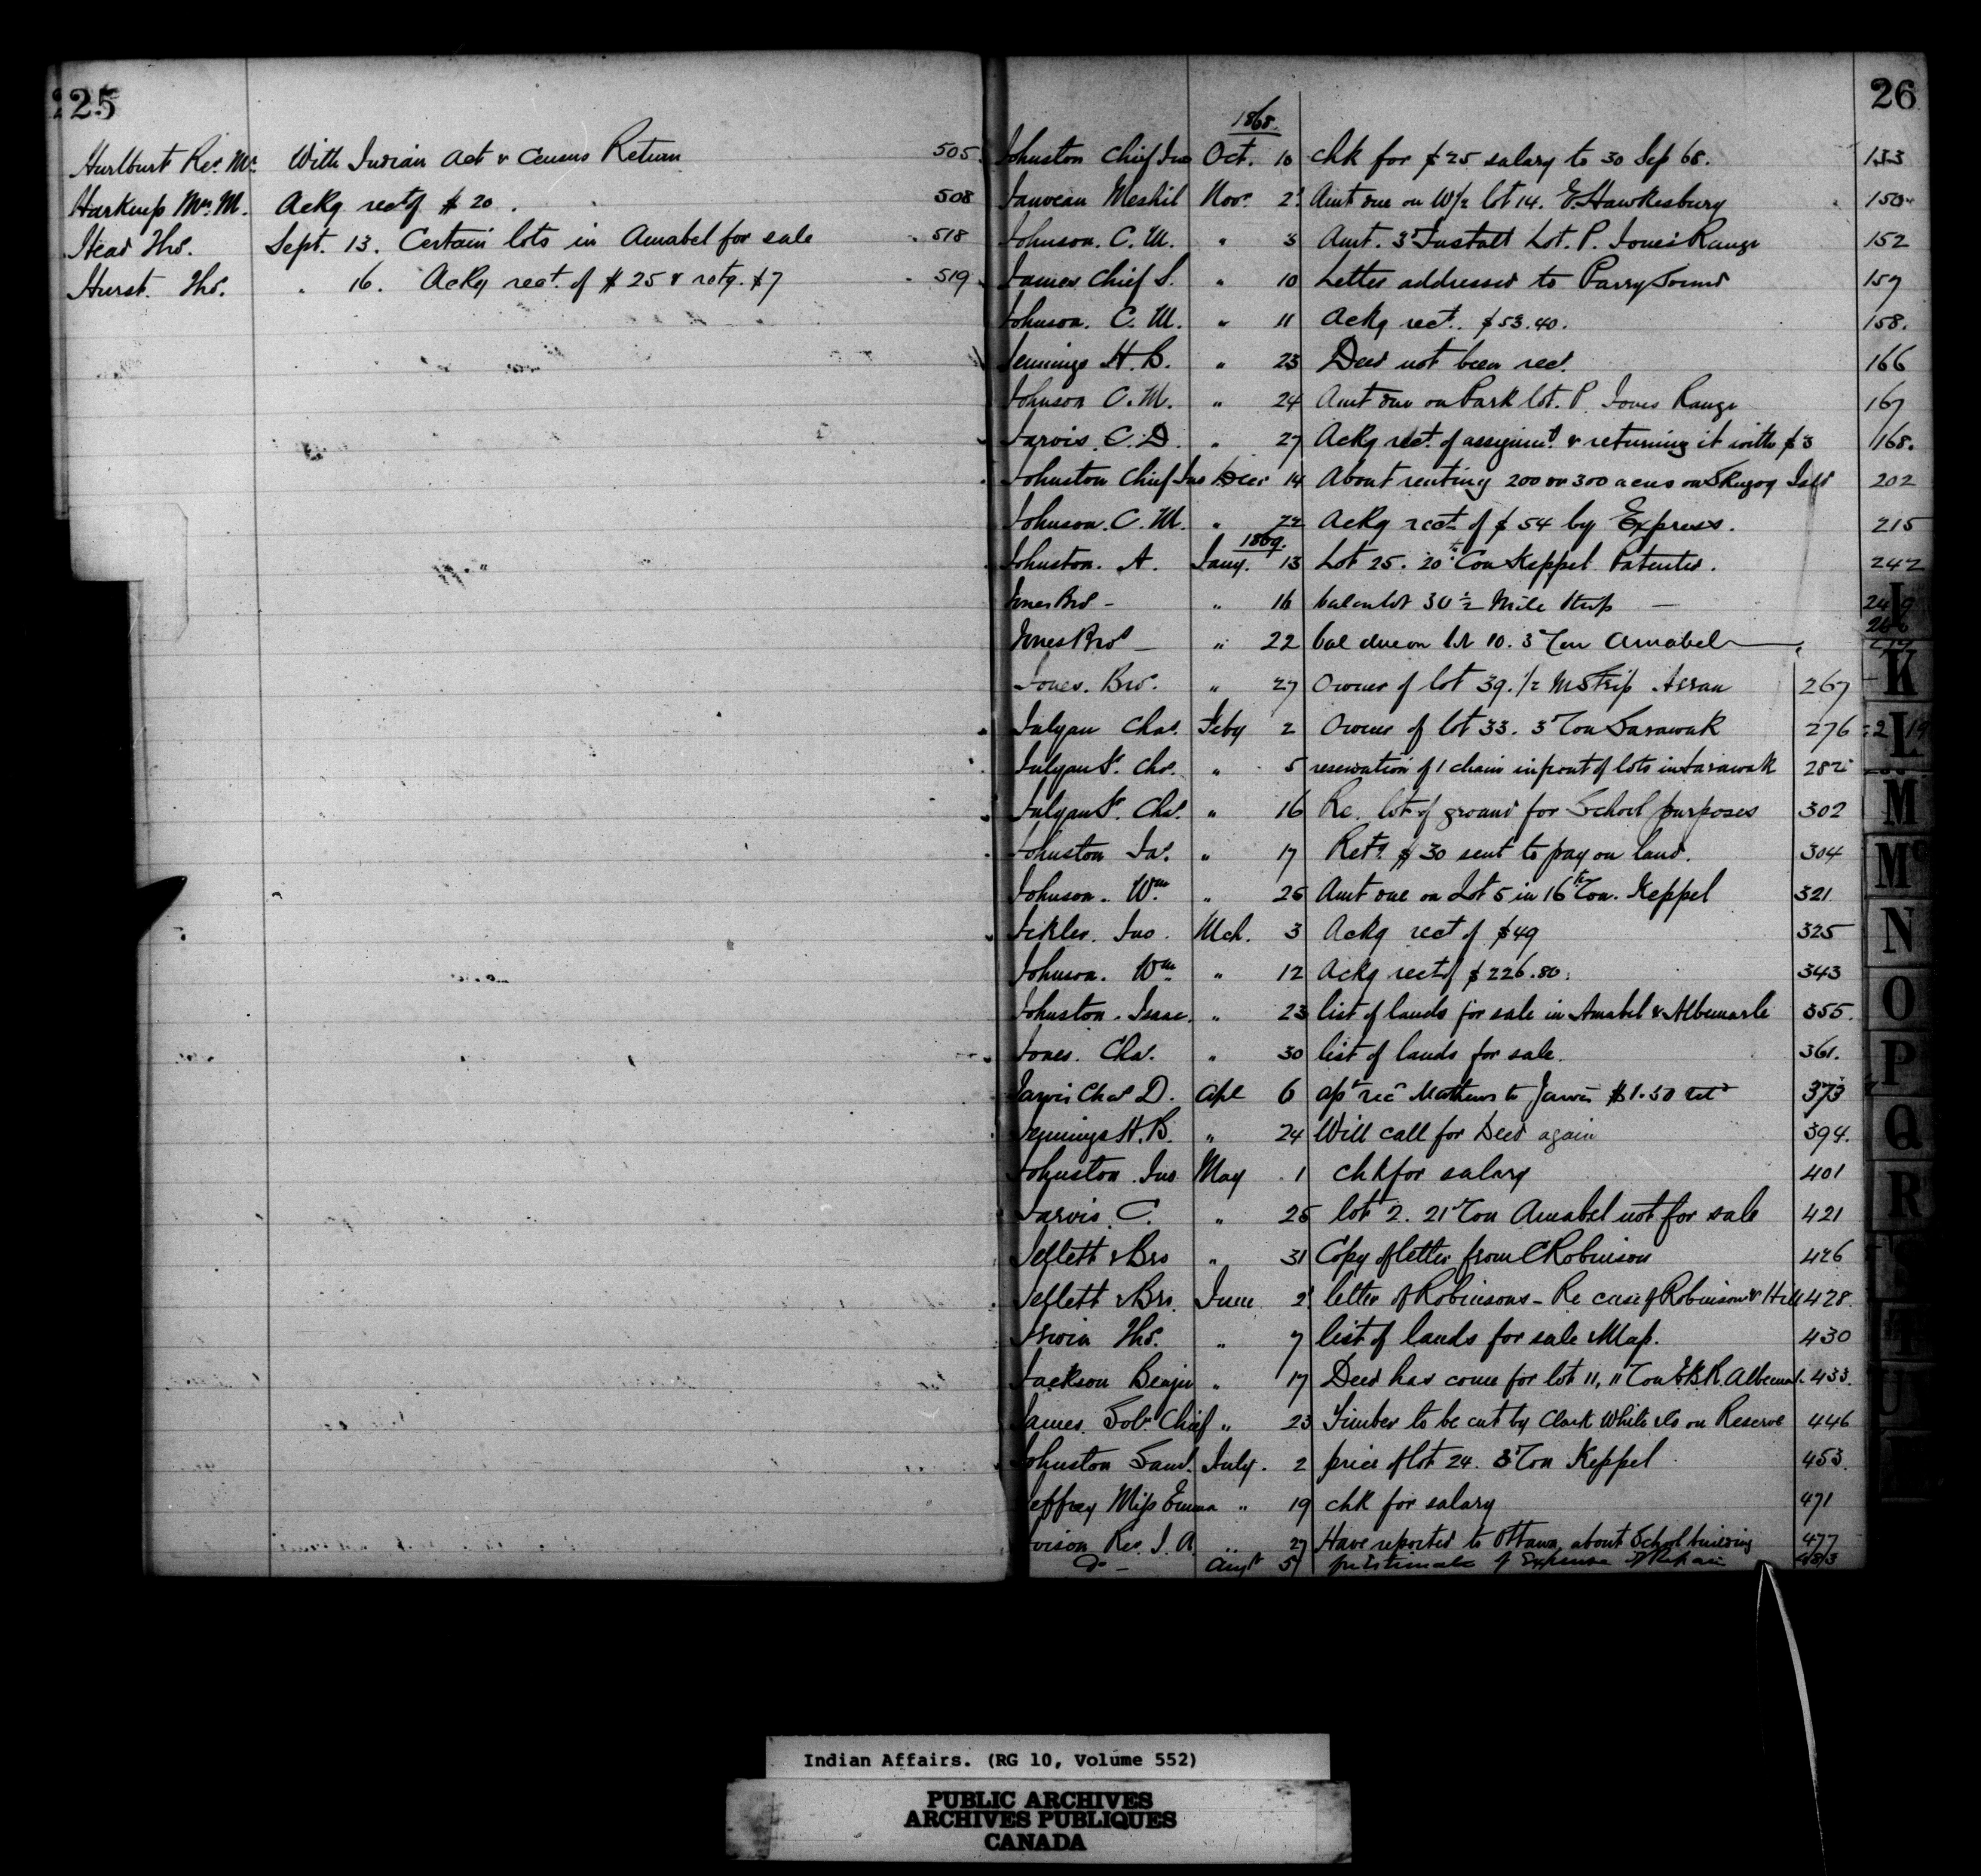 25
Hurlburt Rev. Mr. With Indian Act & Census Return 505
Harkup Mrs. M. Ackg rect of $20. 508
Head Thos. Sept. 13. Certain lots in Amabel for sale 518
Hurst. Thos. " 16. Ackg rect. of $25 & retg. $7 519
26
1868.
Johnston Chief Jno Oct. 10 Chk for $25 salary to 30 Sep 68. 133
Meshil Nov. 2 Amt due on W/2 lot 14. E. Hawkesbury 150
Johnson. C. M. " 3 Amt. 3d Instalt Lot. P. Jones Range 152
James Chief S. " 10 Letter addressed to Parry Sound 157
Johnson. C. M. " 11 Ackg rect. $53.40. 158.
Jennings H. B. " 23 Deed not been recd. 166
Johnson C. M. " 24 Amt due on Park lot. P. Jones Range 167
Jarvis. C. D. " 27 Ackg rect. of assignmt & returning it with $3 168.
Johnston Chief Jno Decr 14 About renting 200 or 300 acres on Skugog Isld 202
Johnson. C. M. " 22 Ackg rect. of $54 by Express. 215
1869.
Johnston. A. Jany. 13 Lot 25. 20th Con Keppel Patented. 242
Jones Bros - " 16 bal on lot 30 ½ Mile Strip — 249
Jones Bros — " 22 bal due on lot 10. 3d Con Amabel
Jones. Bros. " 27 Owner of lot 39. 1/2 M Strip Arran 267
Julyan Chas. Feby 2 Owner of lot 33. 3d Con Sarawak 276
Julyan Sr. Chs. " 5 reservation of 1 chain in front of lots in Sarawak 282
Julyan Sr. Chas. " 16 Re. lot of ground for School purposes 302
Johnston Jas. " 17 Retg. $30 sent to pay on land. 304
Johnson. Wm " 25 Amt due on Lot 5 in 16th Con. Keppel 321
Jickler. Jno. Mch. 3 Ackg rect of $49 325
Johnson. Wm " 12 Ackg rect of $226.80. 343
Johnston. Isaac. " 23 list of lands for sale in Amabel & Albemarle 355.
Jones. Chas. " 30 list of lands for sale. 361.
Jarvis Chas D. Apl 6 Mathews to Jarvis $1.50 373
Jennings H. B. " 24 Will call for Deed again 394.
Johnston Jno May 1 Chk for salary 401
Jarvis. C. " 25 lot 2. 21st Con Amabel not for sale 421
Jeflett & Bro " 31 Copy of letter from C Robinson 426
Jeflett & Bro. June 2 letter of Robinsons - Re case of Robinson & Hill 428.
Irwin Thos. " 7 list of lands for sale & Map. 430
Jackson Benjn " 17 Deed has come for lot 11, 11 Con E.B.R. Albemal. 433.
James. Solr. Chief " 23 Timber to be cut by Clark White & Co on Reserve 446
Johnston Saml. July. 2 price of lot 24. 3d Con Keppel 453.
Jeffrey Miss Emma " 19 Chk for salary 471
Ivison Rev. J. A. " 27 Have reported to Ottawa, about School building 477
Do - Augt 5 for Estimate of Expense of Repair 483
K
L
M
Mc
N
O
P
Q
R
T
U
Indian Affairs. (RG 10, Volume 552)
PUBLIC ARCHIVES
ARCHIVES PUBLIQUES
CANADA